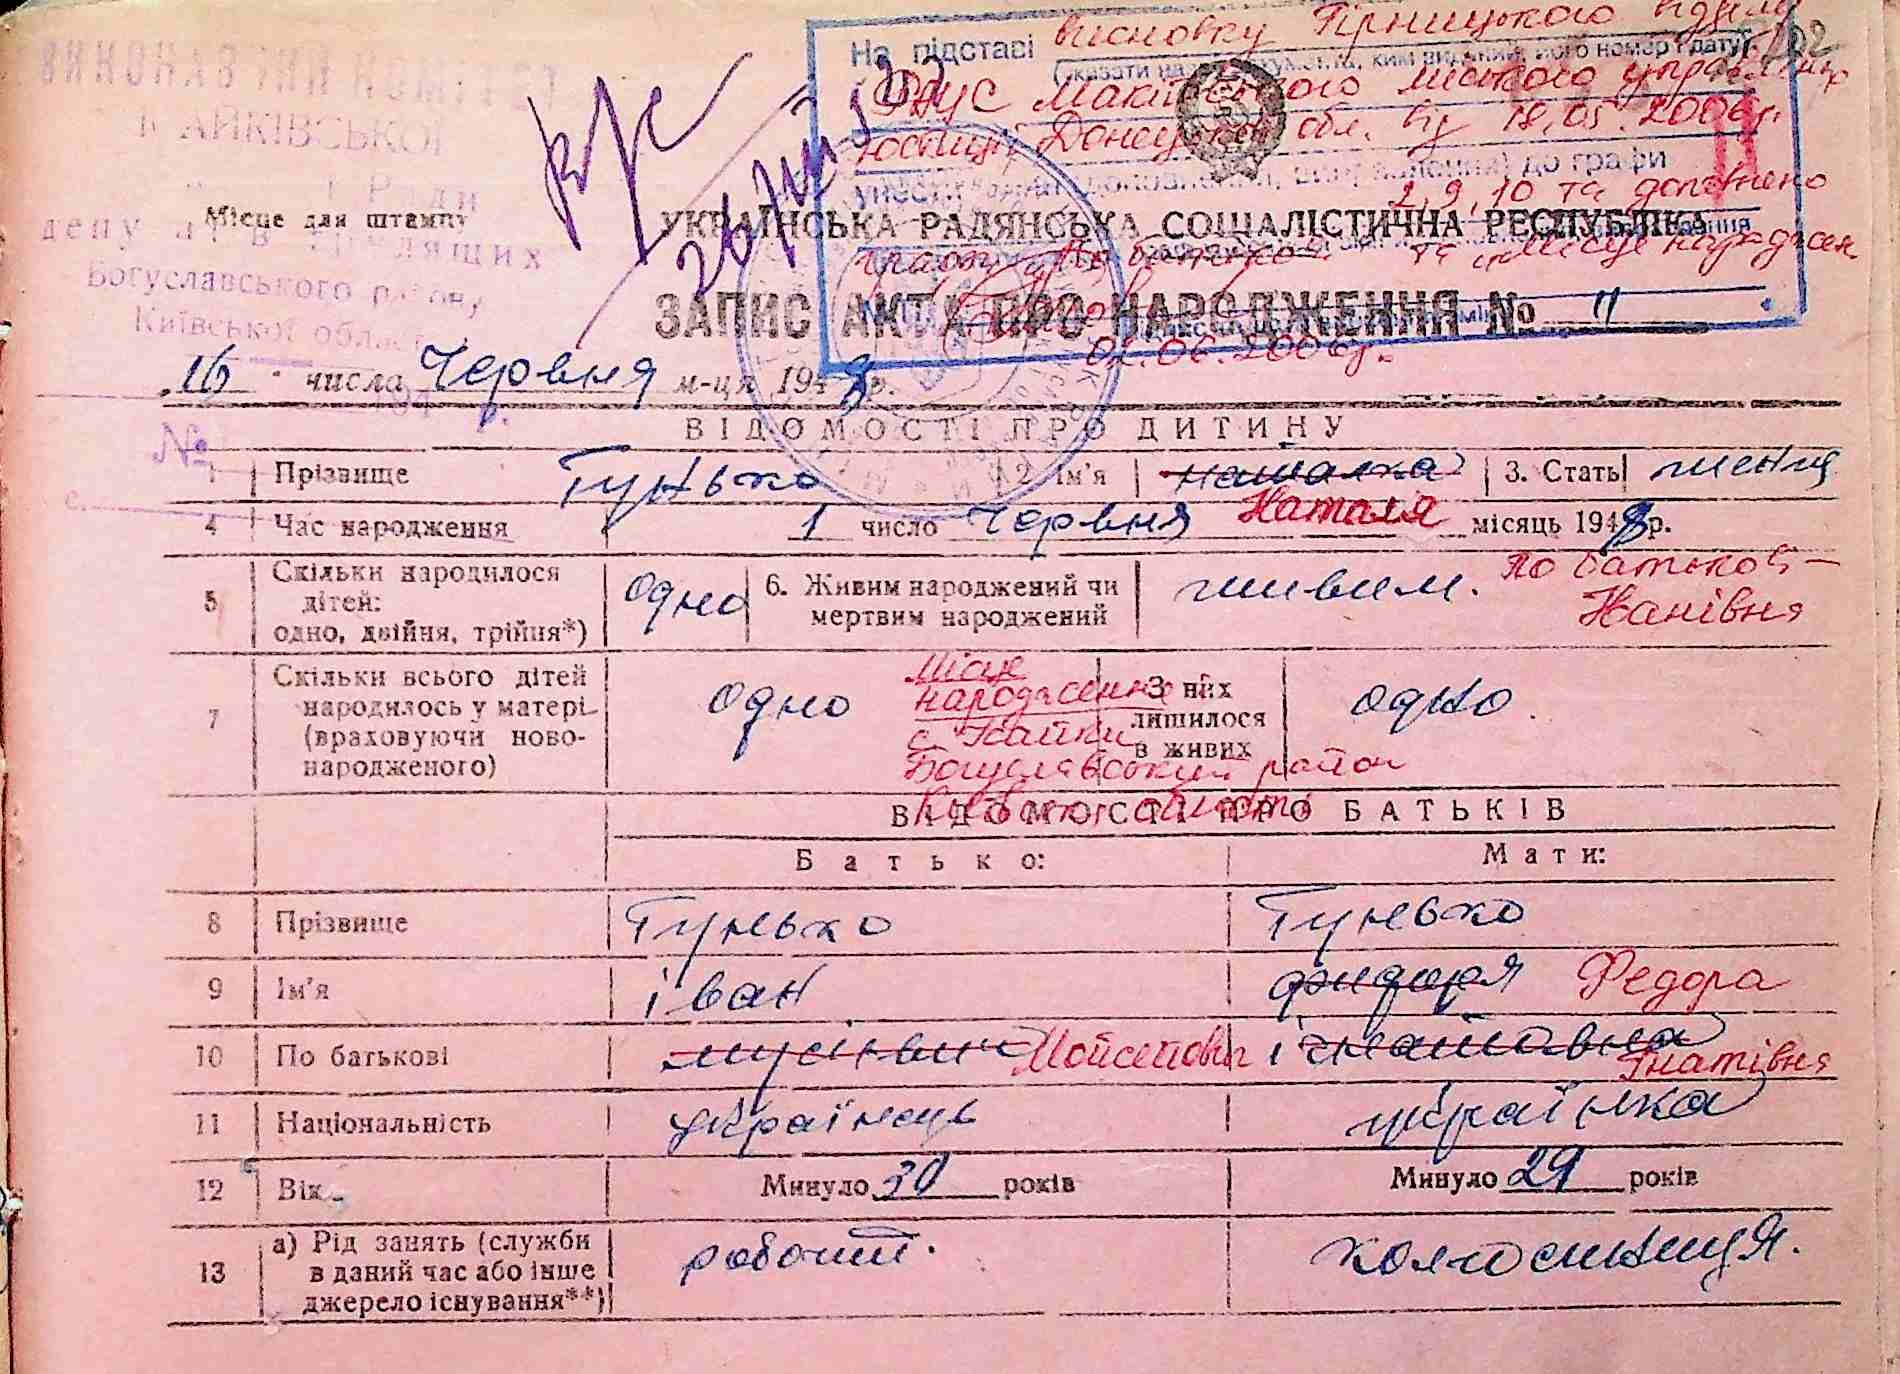 На підставі висновку Гірницького відділу
(указати назву документа, ким виданий, його номер і дату)
Макіївського міського управління
юстиції Донецької обл. від 18.05.2006р.
до графи
2, 9, 10 та доповнено
графи по батькові та місце народжен
02.06.2006р.
ВИКОНАВЧИЙ КОМІТЕТ
КАЙКІВСЬКОЇ
Ради
депутатів трудящих
Богуславського району
Київської області
194 р.
№
Місце для штампу
УКРАЇНСЬКА РАДЯНСЬКА СОЦІАЛІСТИЧНА РЕСПУБЛІКА
ЗАПИС АКТА ПРО НАРОДЖЕННЯ № 11
16 числа Червня м-ця 1948 р.
ВІДОМОСТІ ПРО ДИТИНУ
1 Прізвище Гунько 2 Ім'я наталка 3. Стать жіноч
Наталя
4 Час народження 1 число Червня місяць 1948 р.
5 Скільки народилося дітей: одно, двійня, трійня*) одно 6. Живим народжений чи мертвим народжений живим.
по батькові –
Іванівна
7 Скільки всього дітей народилось у матері (враховуючи новонародженого) одно З них лишилося в живих одно.
місце
народження
с. Кайки
Богуславський район
Київської області
ВІДОМОСТІ ПРО БАТЬКІВ
Батько: Мати:
8 Прізвище Гунько Гунько
9 Ім'я іван фидоря Федора
10 По батькові мусієвич Мойсейович ігнатовна Гнатівна
11 Національність українець українка
12 Вік Минуло 30 років Минуло 29 років
13 а) Рід занять (служби в даний час або інше джерело існування**) робочий. колгоспниця.